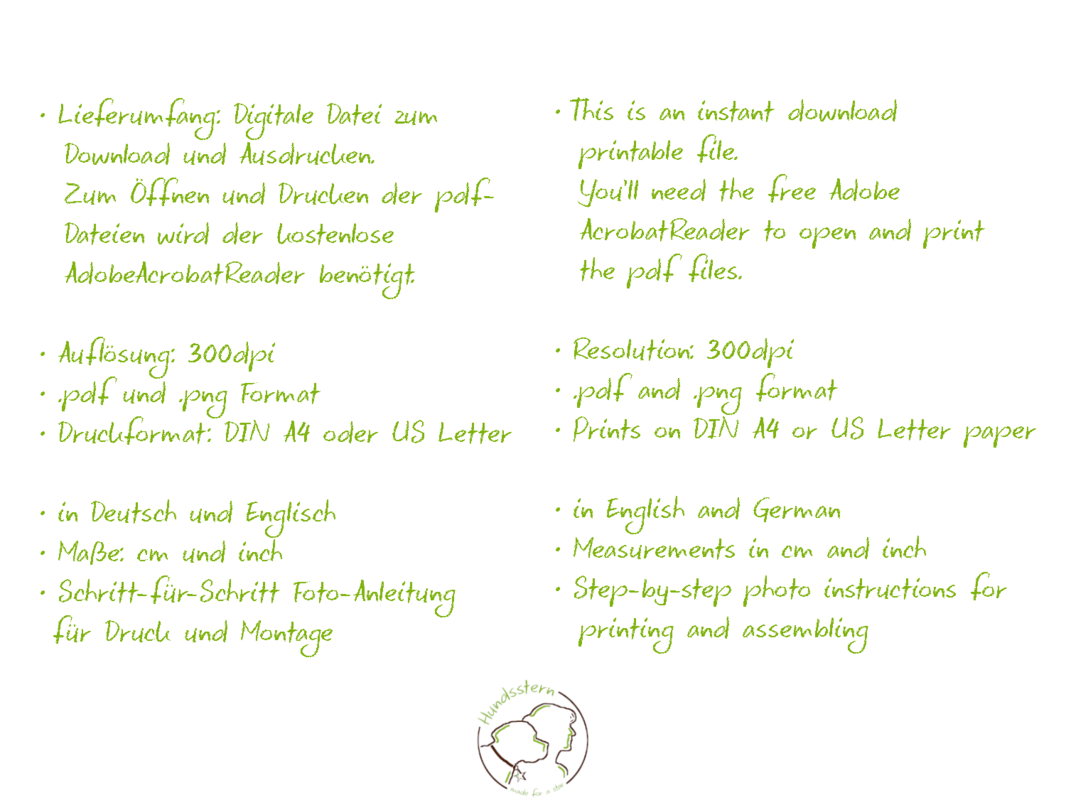 • Lieferumfang: Digitale Datei zum
Download und Ausdrucken.
Zum Öffnen und Drucken der pdf-
Dateien wird der kostenlose
AdobeAcrobatReader benötigt.
• Auflösung: 300dpi
• .pdf und .png Format
• Druckformat: DIN A4 oder US Letter
• in Deutsch und Englisch
• Maße: cm und inch
• Schritt-für-Schritt Foto-Anleitung
für Druck und Montage
• This is an instant download
printable file.
You'll need the free Adobe
AcrobatReader to open and print
the pdf files.
• Resolution: 300dpi
• .pdf and .png format
• Prints on DIN A4 or US Letter paper
• in English and German
• Measurements in cm and inch
• Step-by-step photo instructions for
printing and assembling
Hundsstern
made for a star